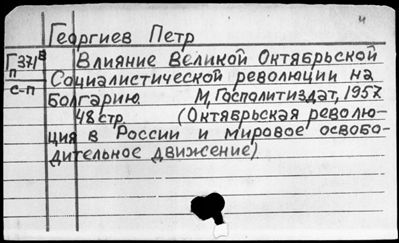 4
Георгиев Петр
Г371 В Влияние Великой Октябрьской
П Социалистической революции на
с-п
Болгарию. М, Госполитиздат, 1957
48 стр. (Октябрьская револю-
ция в России и мировое освобо-
дительное движение)